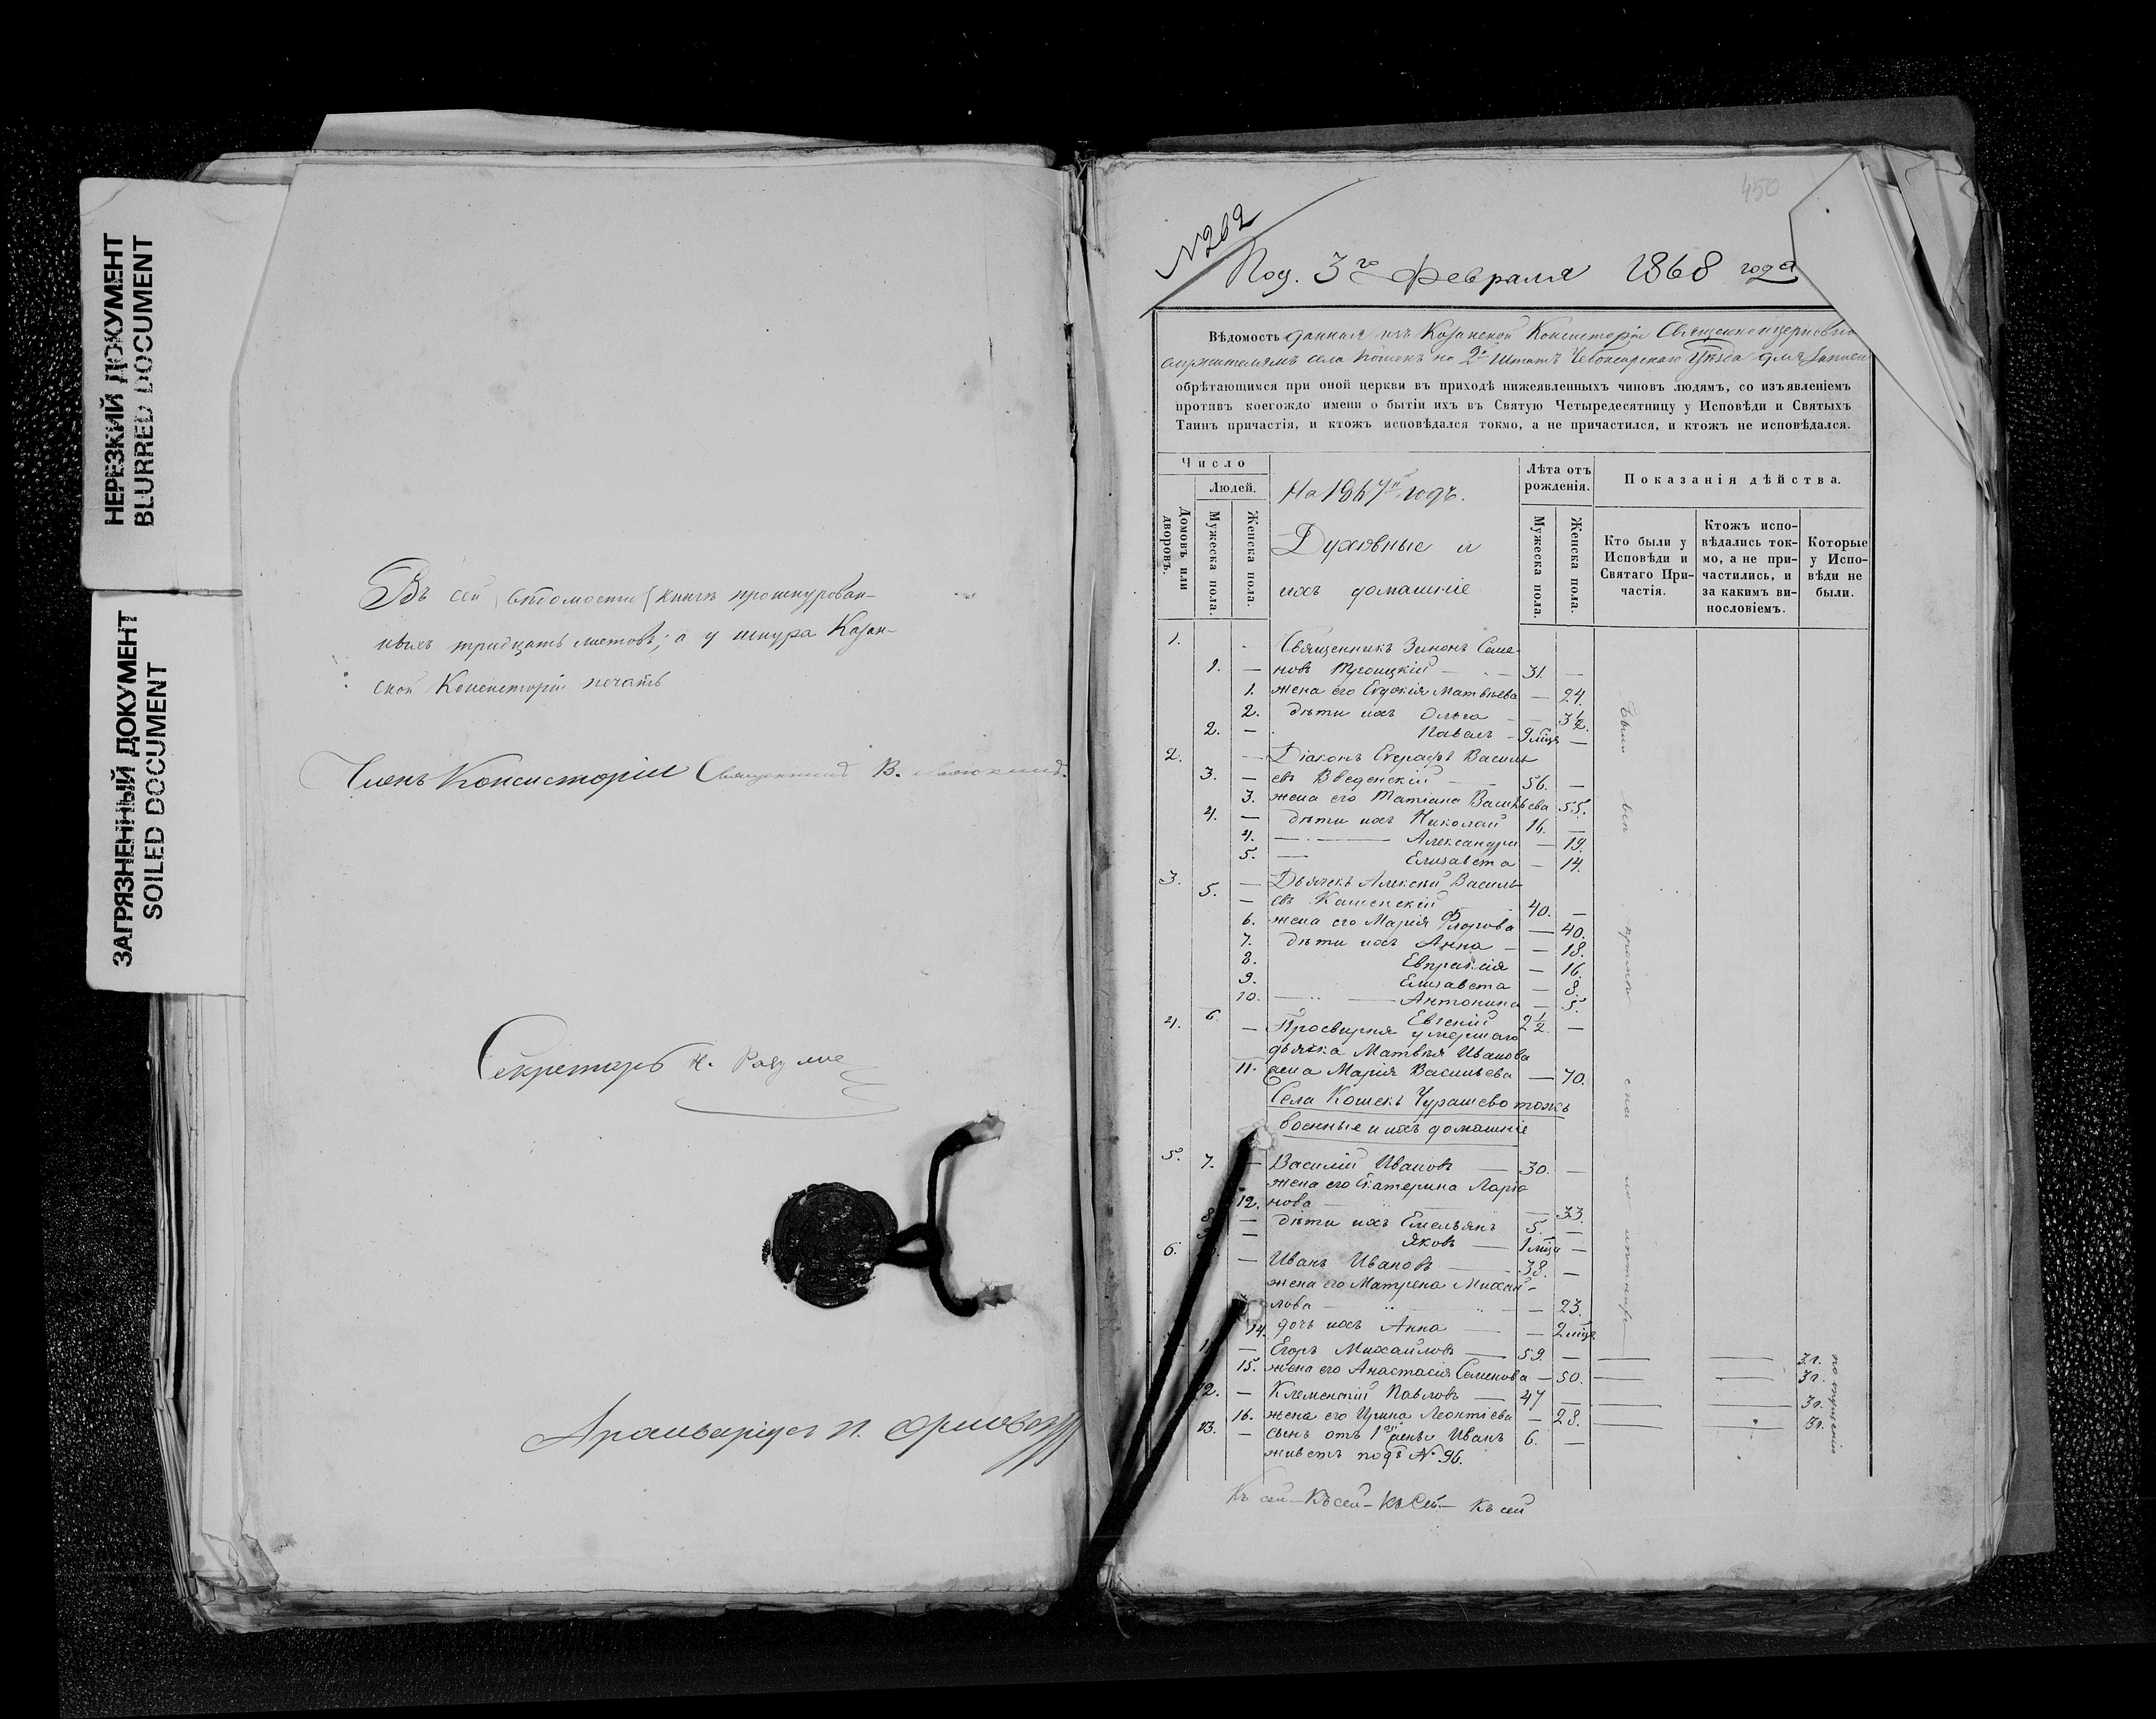 НЕРЕЗКИЙ ДОКУМЕНТ
BLURRED DOCUMENT
ЗАГРЯЗНЕННЫЙ ДОКУМЕНТ
SOILED DOCUMENT
Въ сей (вѣдомости) книгѣ прошнурован-
ныхъ тридцать листовъ; а у шнура Казан-
ской Консисторіи печать
Членъ Консисторіи Священникъ В.
Секретарь Н.
Архиваріусъ И. Орловъ
450
№262
Под. 3го Февраля 1868 года
Вѣдомость данная изъ Казанской Консисторіи Священноцерковно
служителямъ села Кошекъ на 2й Штатъ Чебоксарскаго Уѣзда для
обрѣтающимся при оной церкви въ приходѣ нижеявленныхъ чиновъ людямъ, со изъявленіемъ
противъ коегождо имени о бытіи ихъ въ Святую Четыредесятницу у Исповѣди и Святыхъ
Таинъ причастія, и ктожъ исповѣдался токмо, а не причастился, и ктожъ не исповѣдался.
Число
Людей.
Домовъ или дворовъ.
Мужеска пола.
Женска пола.
На 1867й годъ.
Духовные и
ихъ домашніе
Лѣта отъ рожденія.
Мужеска пола.
Женска пола.
Показанія дѣйства.
Кто были у Исповѣди и Святаго При-частія.
Ктожъ испо-вѣдались ток-мо, а не при-частились, и за какимъ ви-нословіемъ.
Которые у Испо-вѣди не были.
1. Священникъ Зинонъ Семе-
1. — новъ Троицкій — 31. —
1. жена его Евдокія Матвѣева — 24.
2. дѣти ихъ Ольга — 3½.
2. — Павелъ — 9 мѣця —
2. — Діаконъ Евграфъ Василь
3. — евъ Введенскій — 56. —
3. жена его Татіана Васильева 55.
4. — дѣти ихъ Николай 16. —
4. — Александра — 19.
5. — Елизавета — 14.
3. 5. — Дьячекъ Алексѣй Василь
— евъ Кашенскій 40. —
6. жена его Марія Флорова — 40.
7. дѣти ихъ Анна — 18.
8. Евпраксія — 16.
9. Елизавета — 8.
10. — Антонина — 5.
6 Евгеній 2½. —
4. — Просвирня умершаго
дьячка Матвѣя Иванова
11. жена Марія Васильева — 70.
Села Кошекъ Чурашево тожъ
военные и ихъ домашніе
5. 7. — Василій Ивановъ — 30. —
жена его Екатерина Ларіо
12. нова — 33.
8 — дѣти ихъ Емельянъ 5. —
— Яковъ — 1 мѣца —
6. — Иванъ Ивановъ — 38. —
жена его Матрена Михай-
лова — 23.
14. дочь ихъ Анна — 2 мѣця
— Егоръ Михайловъ — 59. — 3л.
15. жена его Анастасія Семенова — 50. — 3л.
12. — Климентій Павловъ — 47 — 3л.
16. жена его Ирина Леонтіева — 28. — 3л.
13. — сынъ отъ 1й жены Иванъ 6. —
живетъ подъ № 96.
Были вси кромѣ
Къ сей — Къ сей — Къ Сей — Къ сей